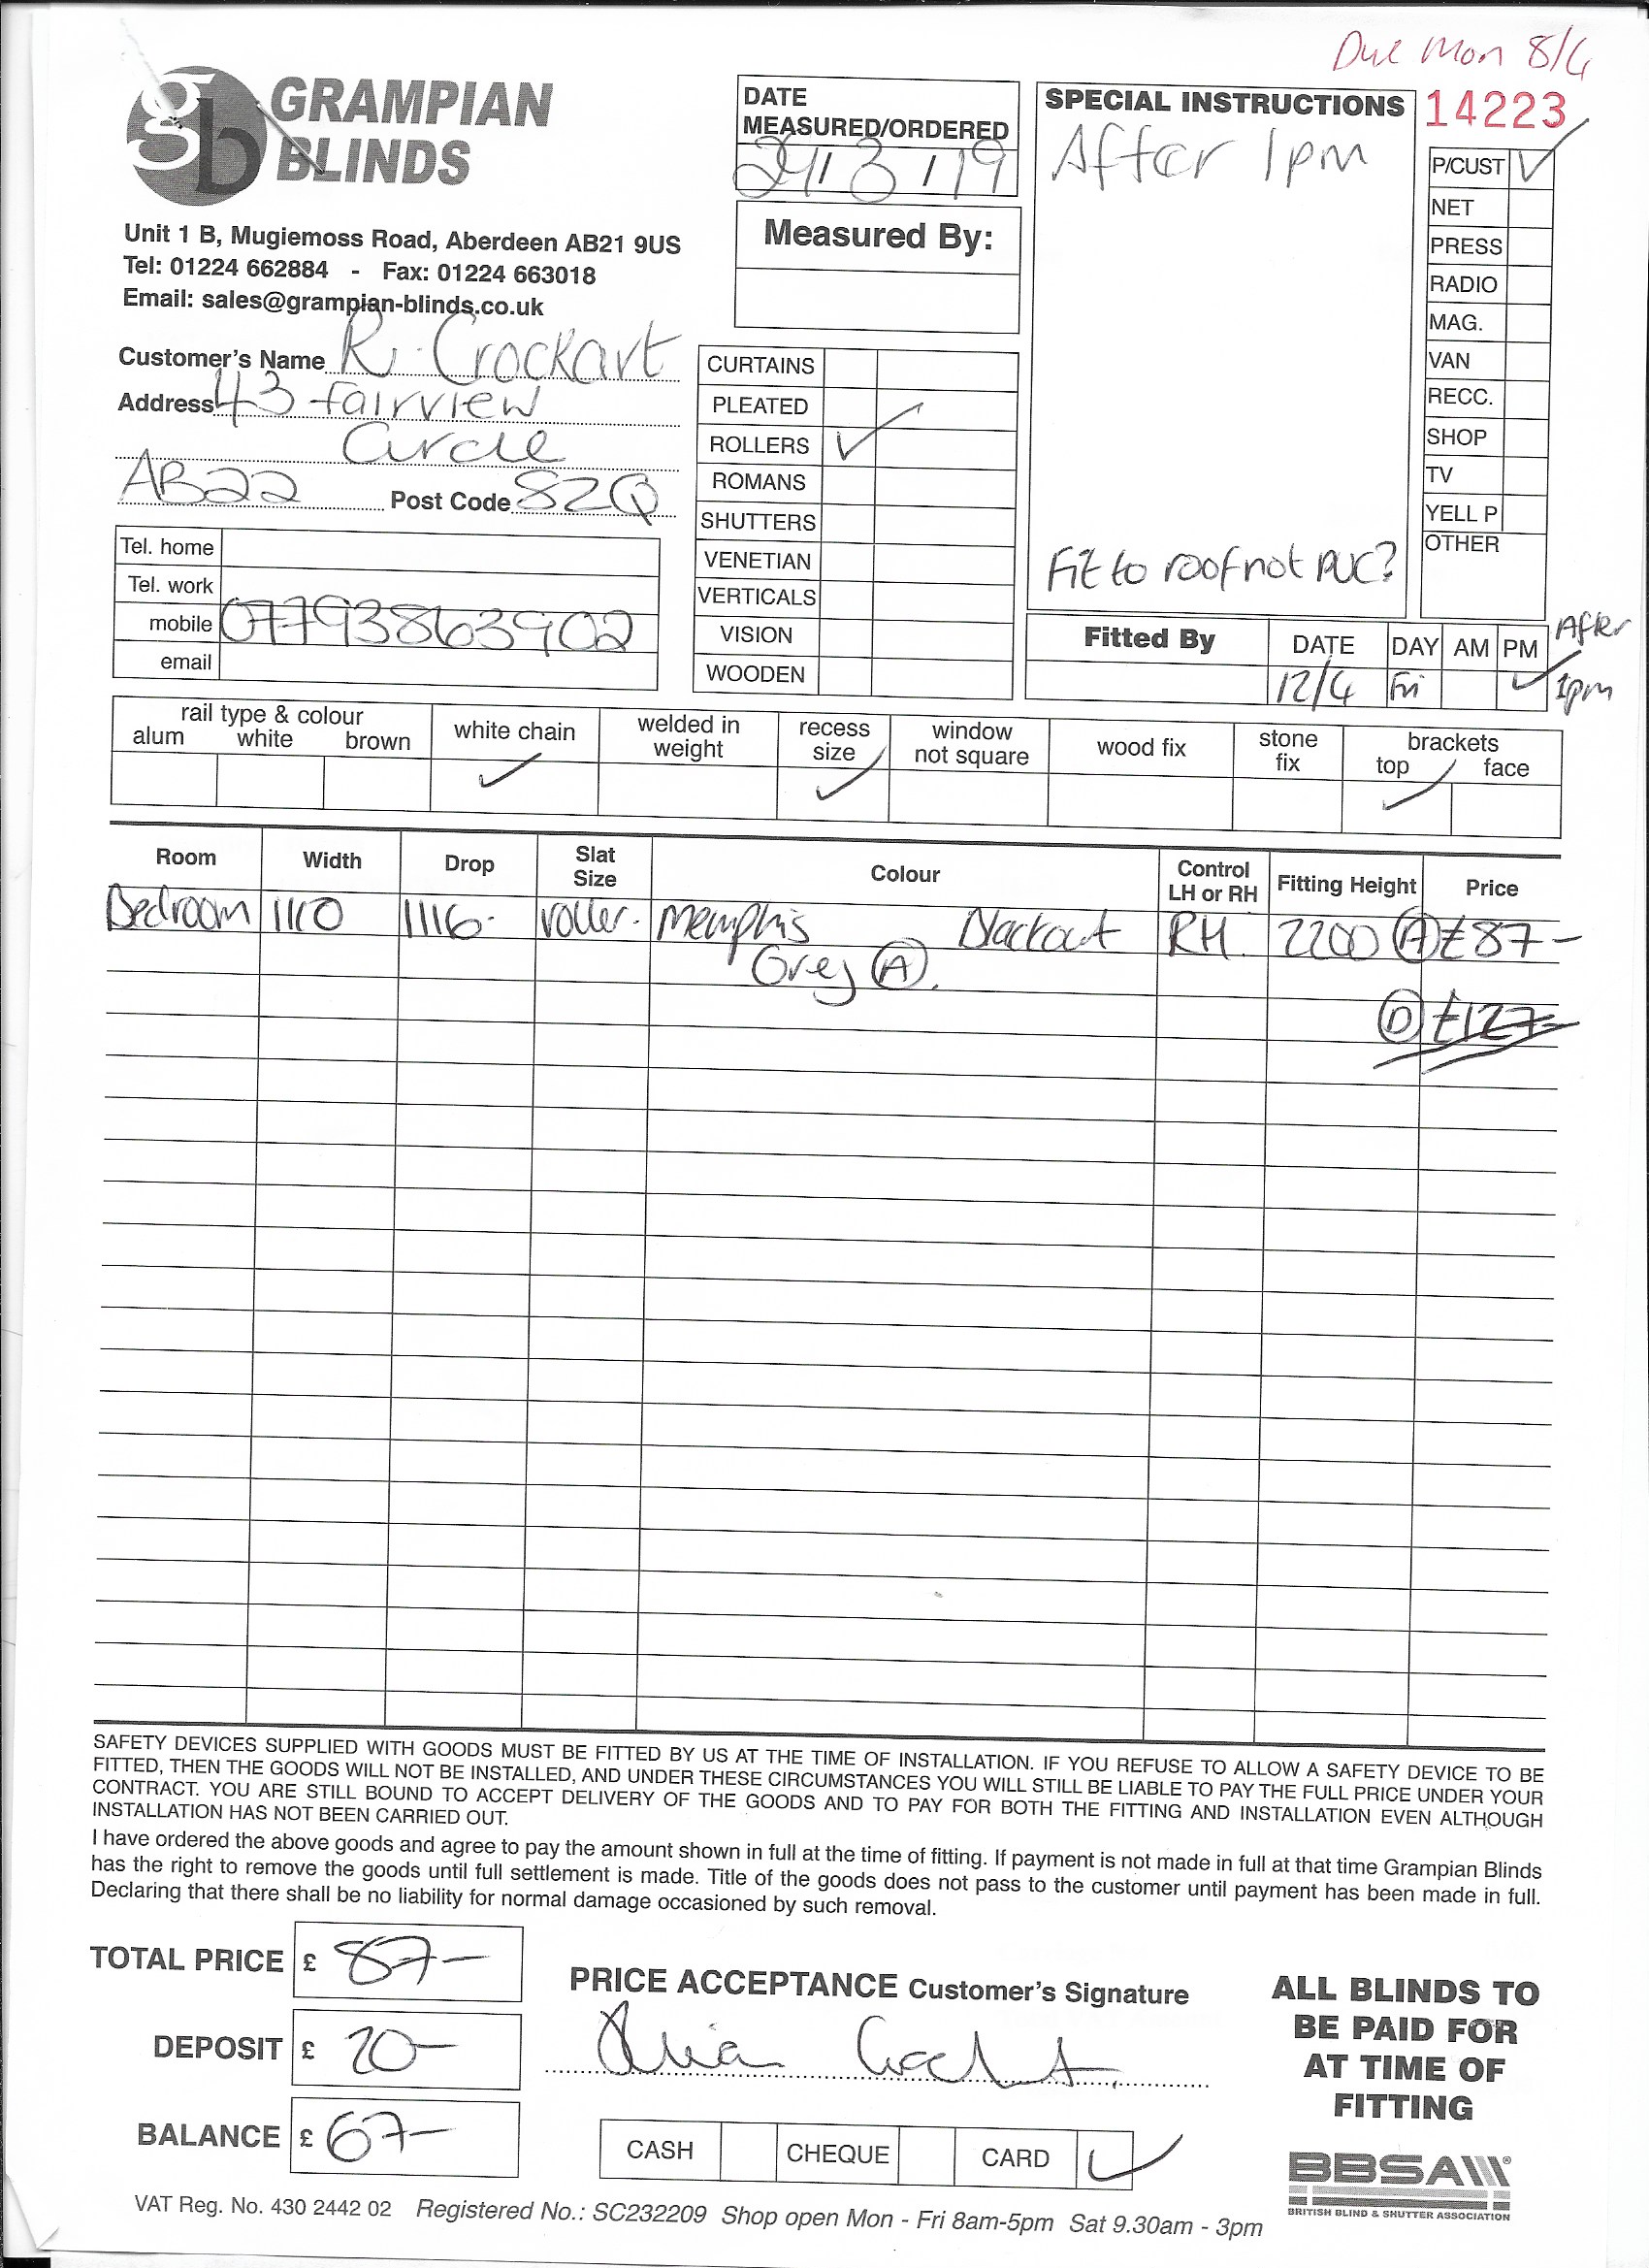 Due Mon 8/4
gb GRAMPIAN BLINDS
Unit 1 B, Mugiemoss Road, Aberdeen AB21 9US
Tel: 01224 662884 - Fax: 01224 663018
Email: sales@grampian-blinds.co.uk
Customer's Name R. Crockart
Address 43 Fairview
Circle
AB22 Post Code 8ZQ
Tel. home
Tel. work
mobile 07793863902
email
DATE
MEASURED/ORDERED
/ 3 / 19
Measured By:
CURTAINS
PLEATED
ROLLERS ✓
ROMANS
SHUTTERS
VENETIAN
VERTICALS
VISION
WOODEN
SPECIAL INSTRUCTIONS
After 1pm
Fit to roof not PVC?
14223
P/CUST ✓
NET
PRESS
RADIO
MAG.
VAN
RECC.
SHOP
TV
YELL P
OTHER
Fitted By DATE DAY AM PM After
12/4 Fri ✓ 1pm
rail type & colour
alum white brown
white chain ✓
welded in weight
recess size ✓
window not square
wood fix
stone fix
brackets
top ✓ face
Room Width Drop Slat Size Colour Control LH or RH Fitting Height Price
Bedroom 1110 1116 roller. Memphis Blackout RH 2200 (A) £87-
Grey (A).
(D) £127-
SAFETY DEVICES SUPPLIED WITH GOODS MUST BE FITTED BY US AT THE TIME OF INSTALLATION. IF YOU REFUSE TO ALLOW A SAFETY DEVICE TO BE
FITTED, THEN THE GOODS WILL NOT BE INSTALLED, AND UNDER THESE CIRCUMSTANCES YOU WILL STILL BE LIABLE TO PAY THE FULL PRICE UNDER YOUR
CONTRACT. YOU ARE STILL BOUND TO ACCEPT DELIVERY OF THE GOODS AND TO PAY FOR BOTH THE FITTING AND INSTALLATION EVEN ALTHOUGH
INSTALLATION HAS NOT BEEN CARRIED OUT.
I have ordered the above goods and agree to pay the amount shown in full at the time of fitting. If payment is not made in full at that time Grampian Blinds
has the right to remove the goods until full settlement is made. Title of the goods does not pass to the customer until payment has been made in full.
Declaring that there shall be no liability for normal damage occasioned by such removal.
TOTAL PRICE £ 87-
DEPOSIT £ 20-
BALANCE £ 67-
PRICE ACCEPTANCE Customer's Signature
CASH CHEQUE CARD ✓
ALL BLINDS TO
BE PAID FOR
AT TIME OF
FITTING
BBSA
BRITISH BLIND & SHUTTER ASSOCIATION
VAT Reg. No. 430 2442 02 Registered No.: SC232209 Shop open Mon - Fri 8am-5pm Sat 9.30am - 3pm